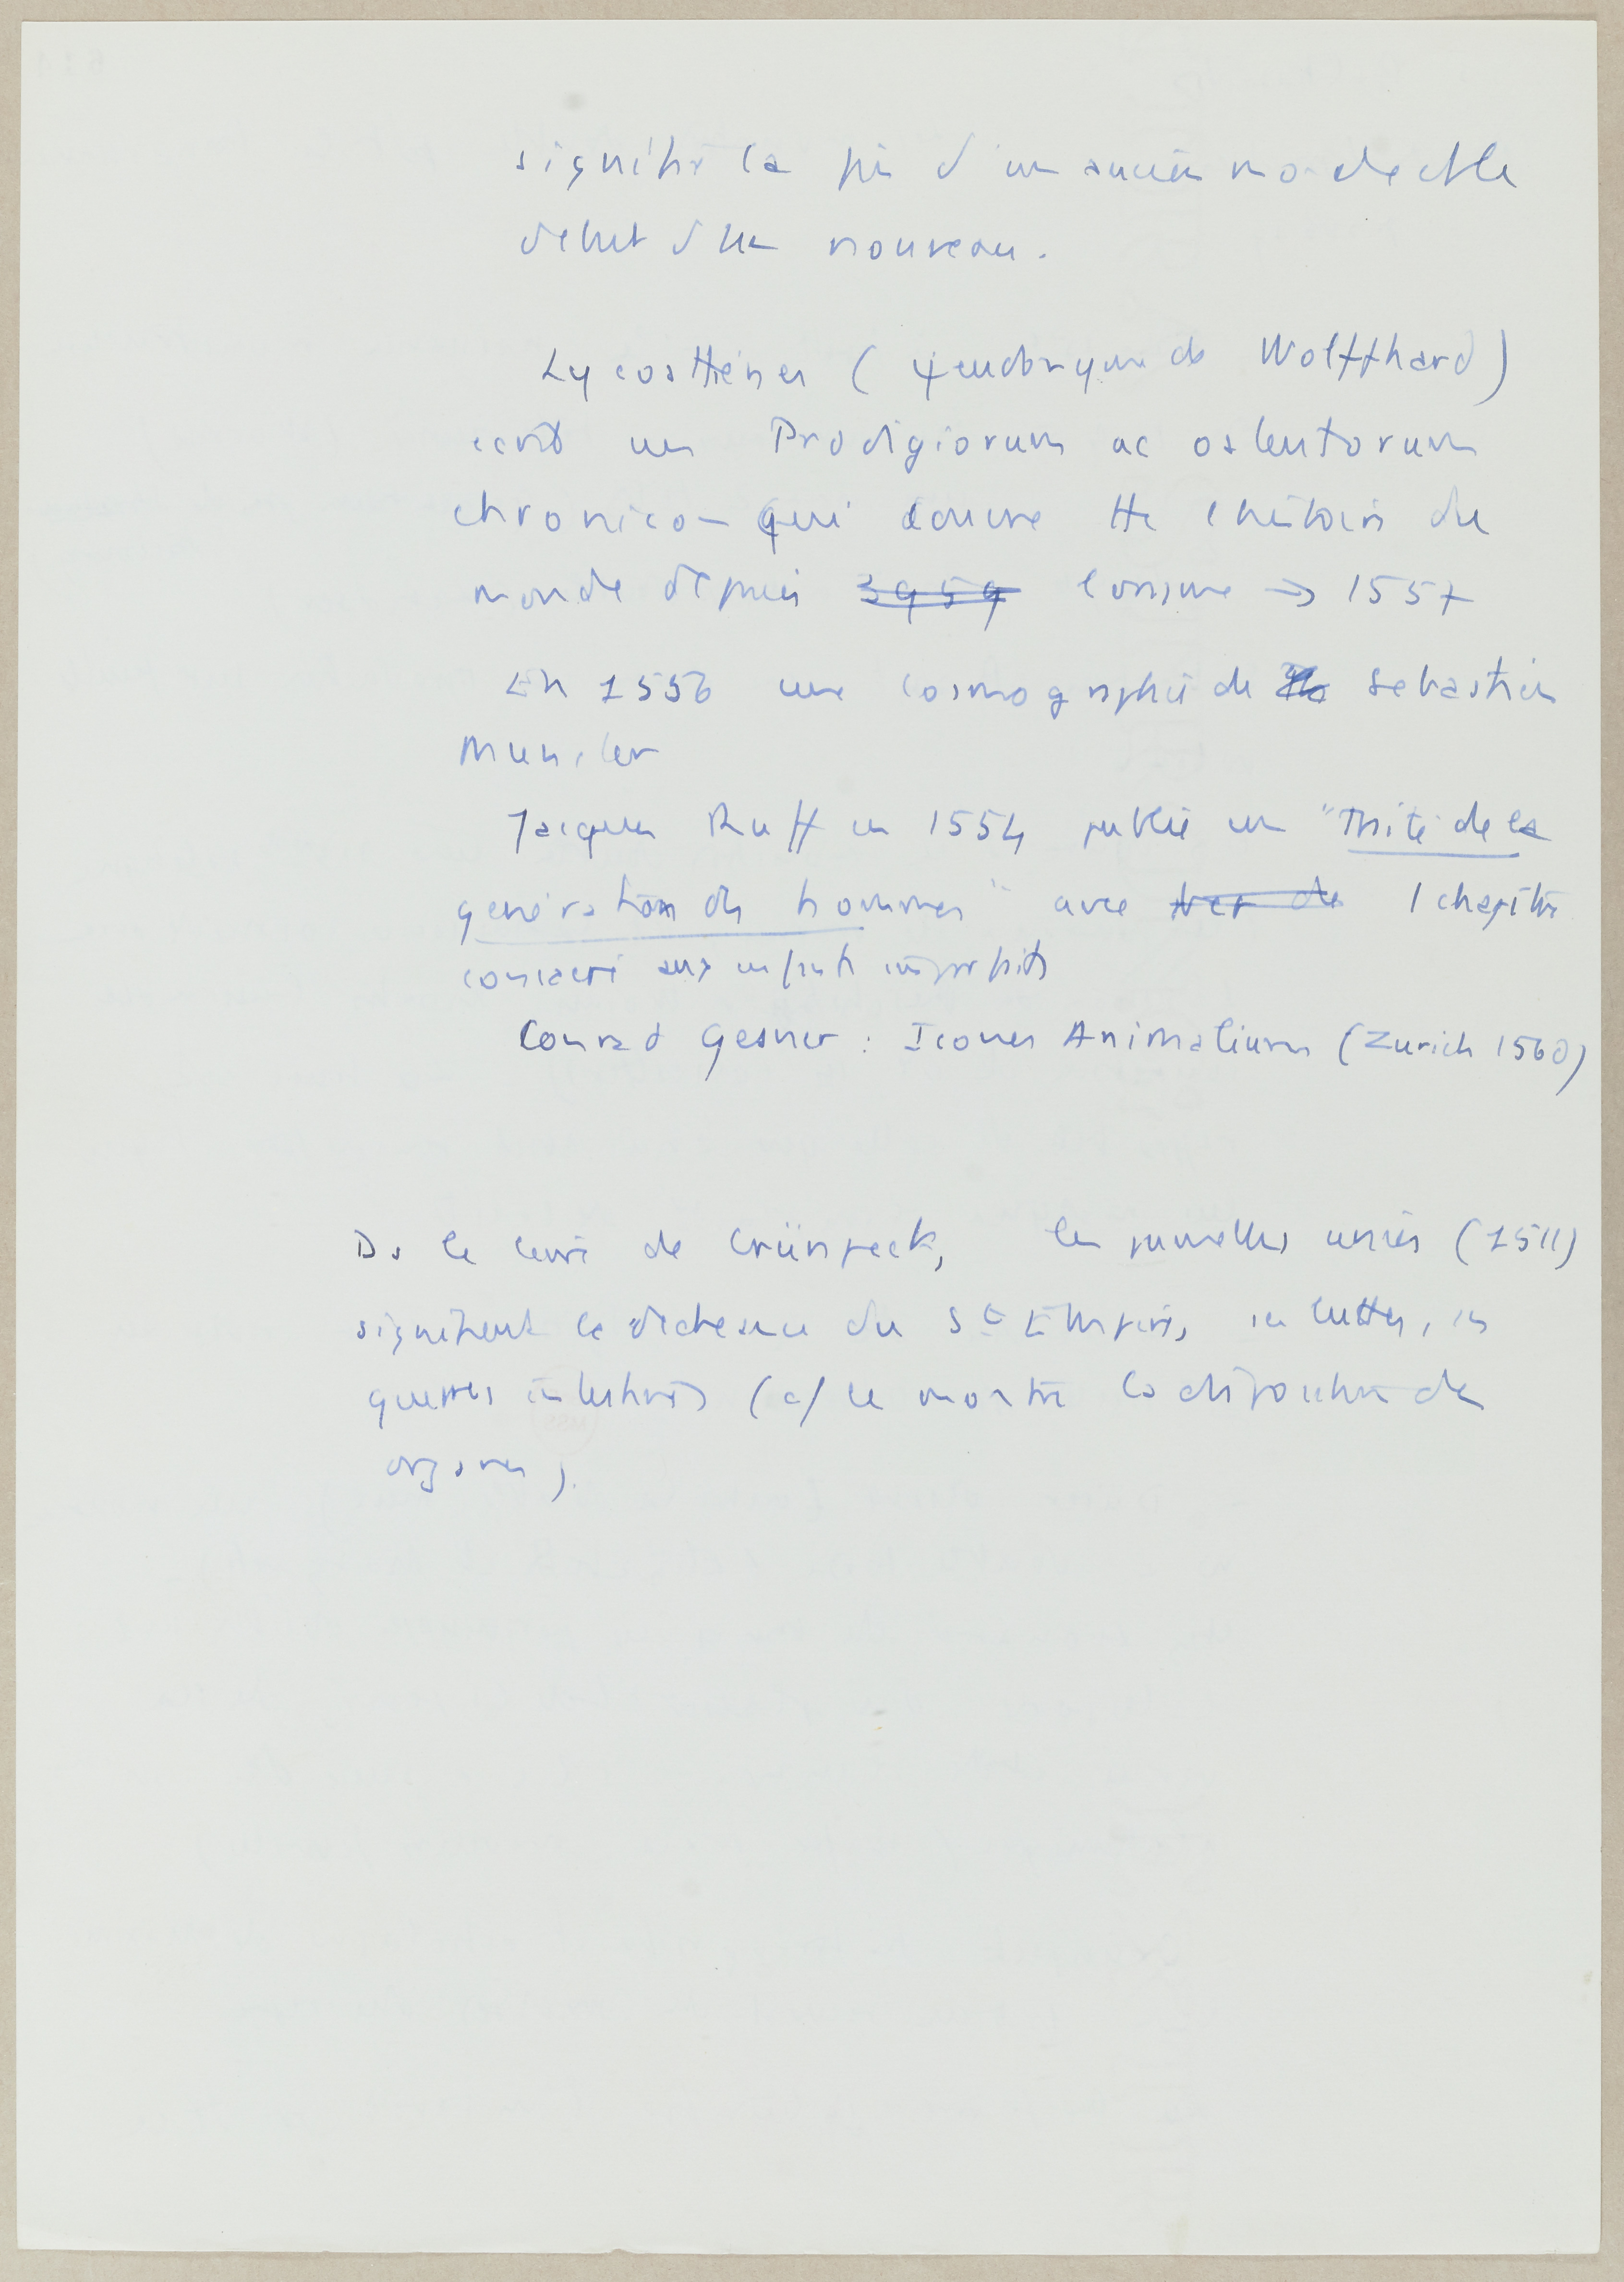 signifie la fin d'un ancien monde et le
debut d'un nouveau.
Lycosthènes (ψeudonyme de Wolffhard)
ecrit un Prodigiorum ac ostentorum
chronicon qui couvre tte l'histoire du
monde depuis 3959 l'origine → 1557
En 1556 une cosmographie de Sebastien
Munster
Jacques Ruff en 1554 publie un "Traité de la
géneration des hommes" avec 1 chapitre
consacré aux enfants imparfaits
Conrad Gesner : Icones Animalium (Zurich 1560)
Ds le livre de Grünpeck, les jumelles unies (1511)
signifient la decheance du St Empire, les luttes, les
guerres intestines (cf le montre la disposition des
organes).